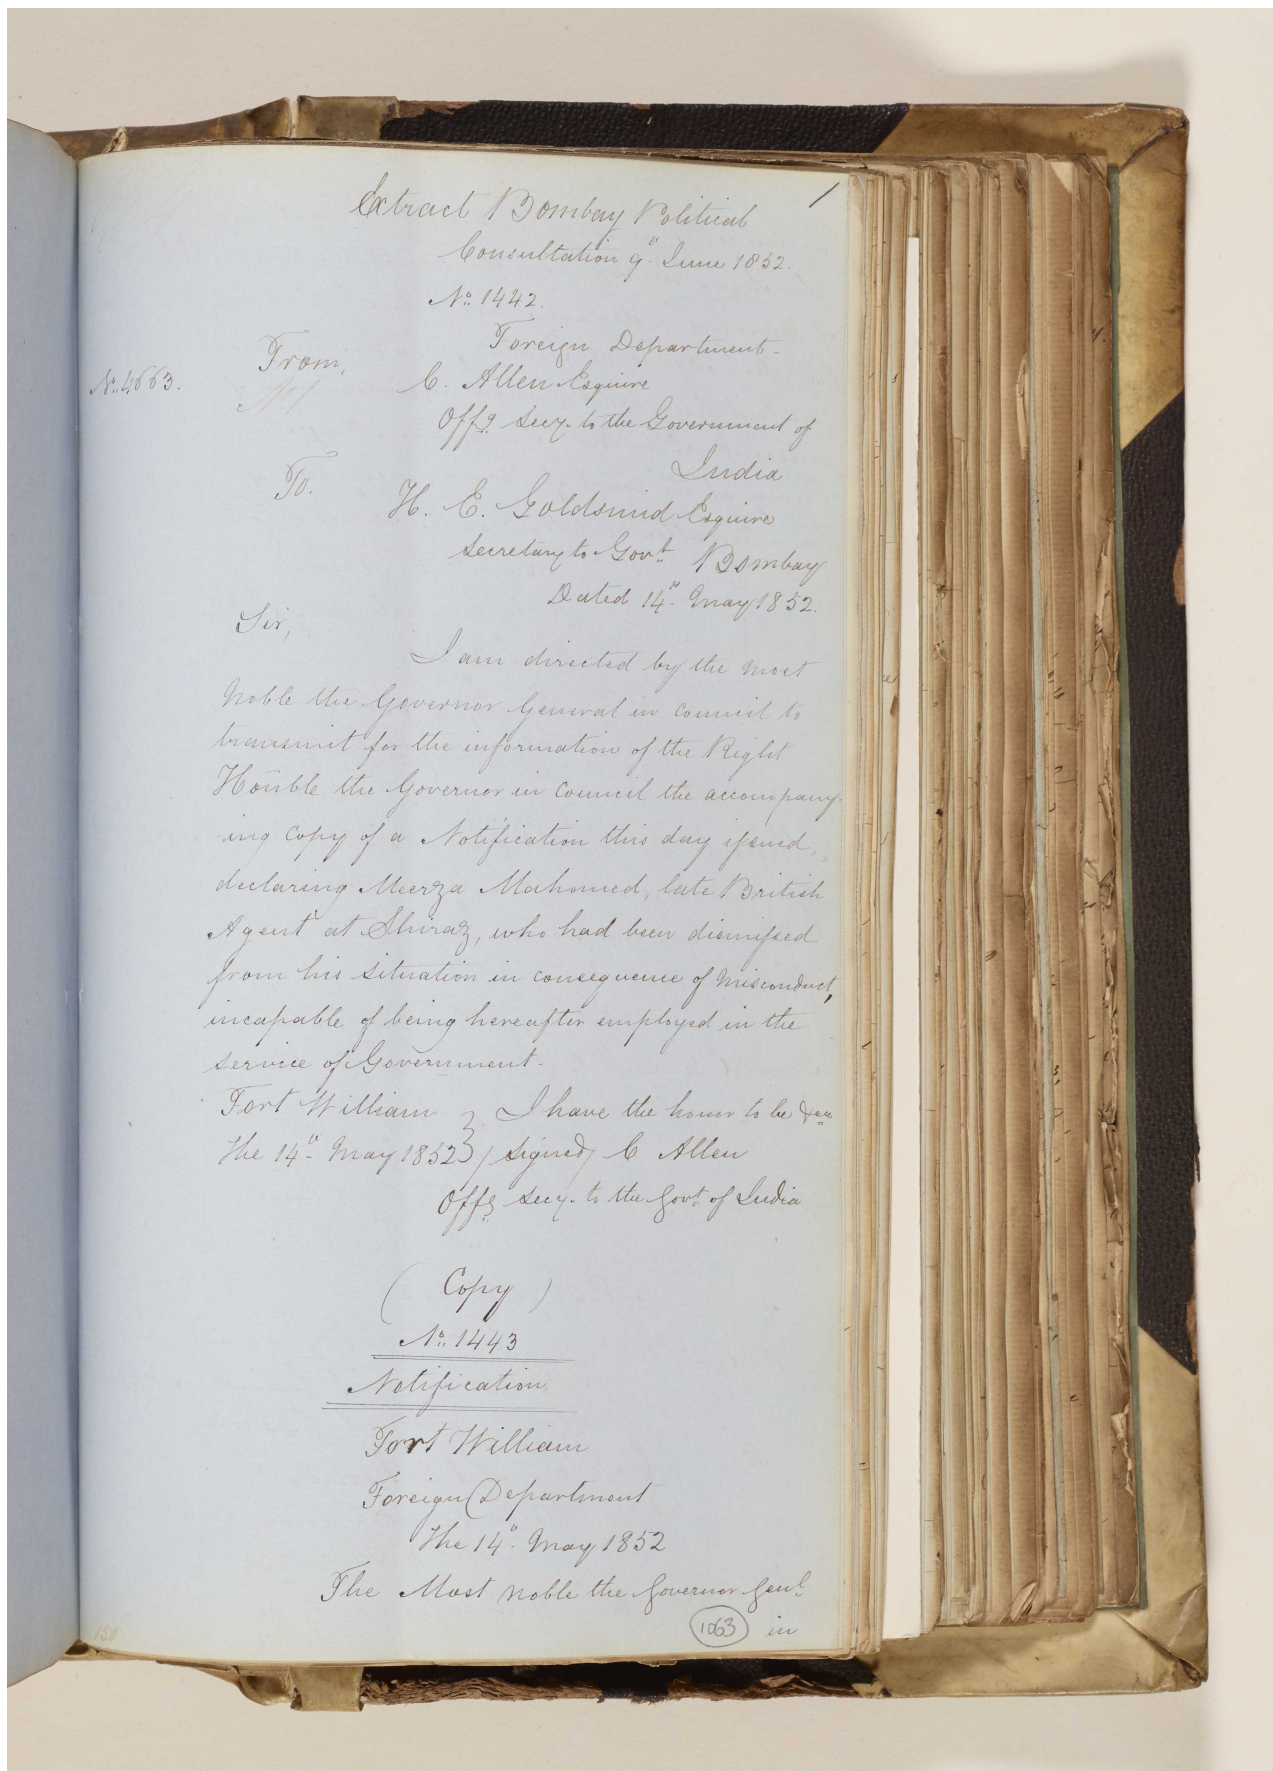 1
Extract Bombay Political
Consultation 9th June 1852.
No. 1442.
Foreign Department-
No. 4663.
From,
C. Allen Esquire
Offg. Secy. to the Government of
India
To.
H. E. Goldsmid Esquire
Secretary to Govt. Bombay
Dated 14th May 1852.
Sir,
I am directed by the Most
Noble the Governor General in Council to
transmit for the information of the Right
Honble the Governor in Council the accompany-
ing Copy of a Notification this day issued,
declaring Meerza Mahomed, late British
Agent at Shiraz, who had been dismissed
from his situation in consequence of misconduct,
incapable of being hereafter employed in the
service of Government.
Fort William } I have the honor to be &ca
The 14th May 1852 } /signed/ C Allen
Offg Secy. to the Govt. of India
( Copy )
No. 1443
Notification
Fort William
Foreign Department
The 14th May 1852
The Most noble the Governor Genl.
1063 in
150